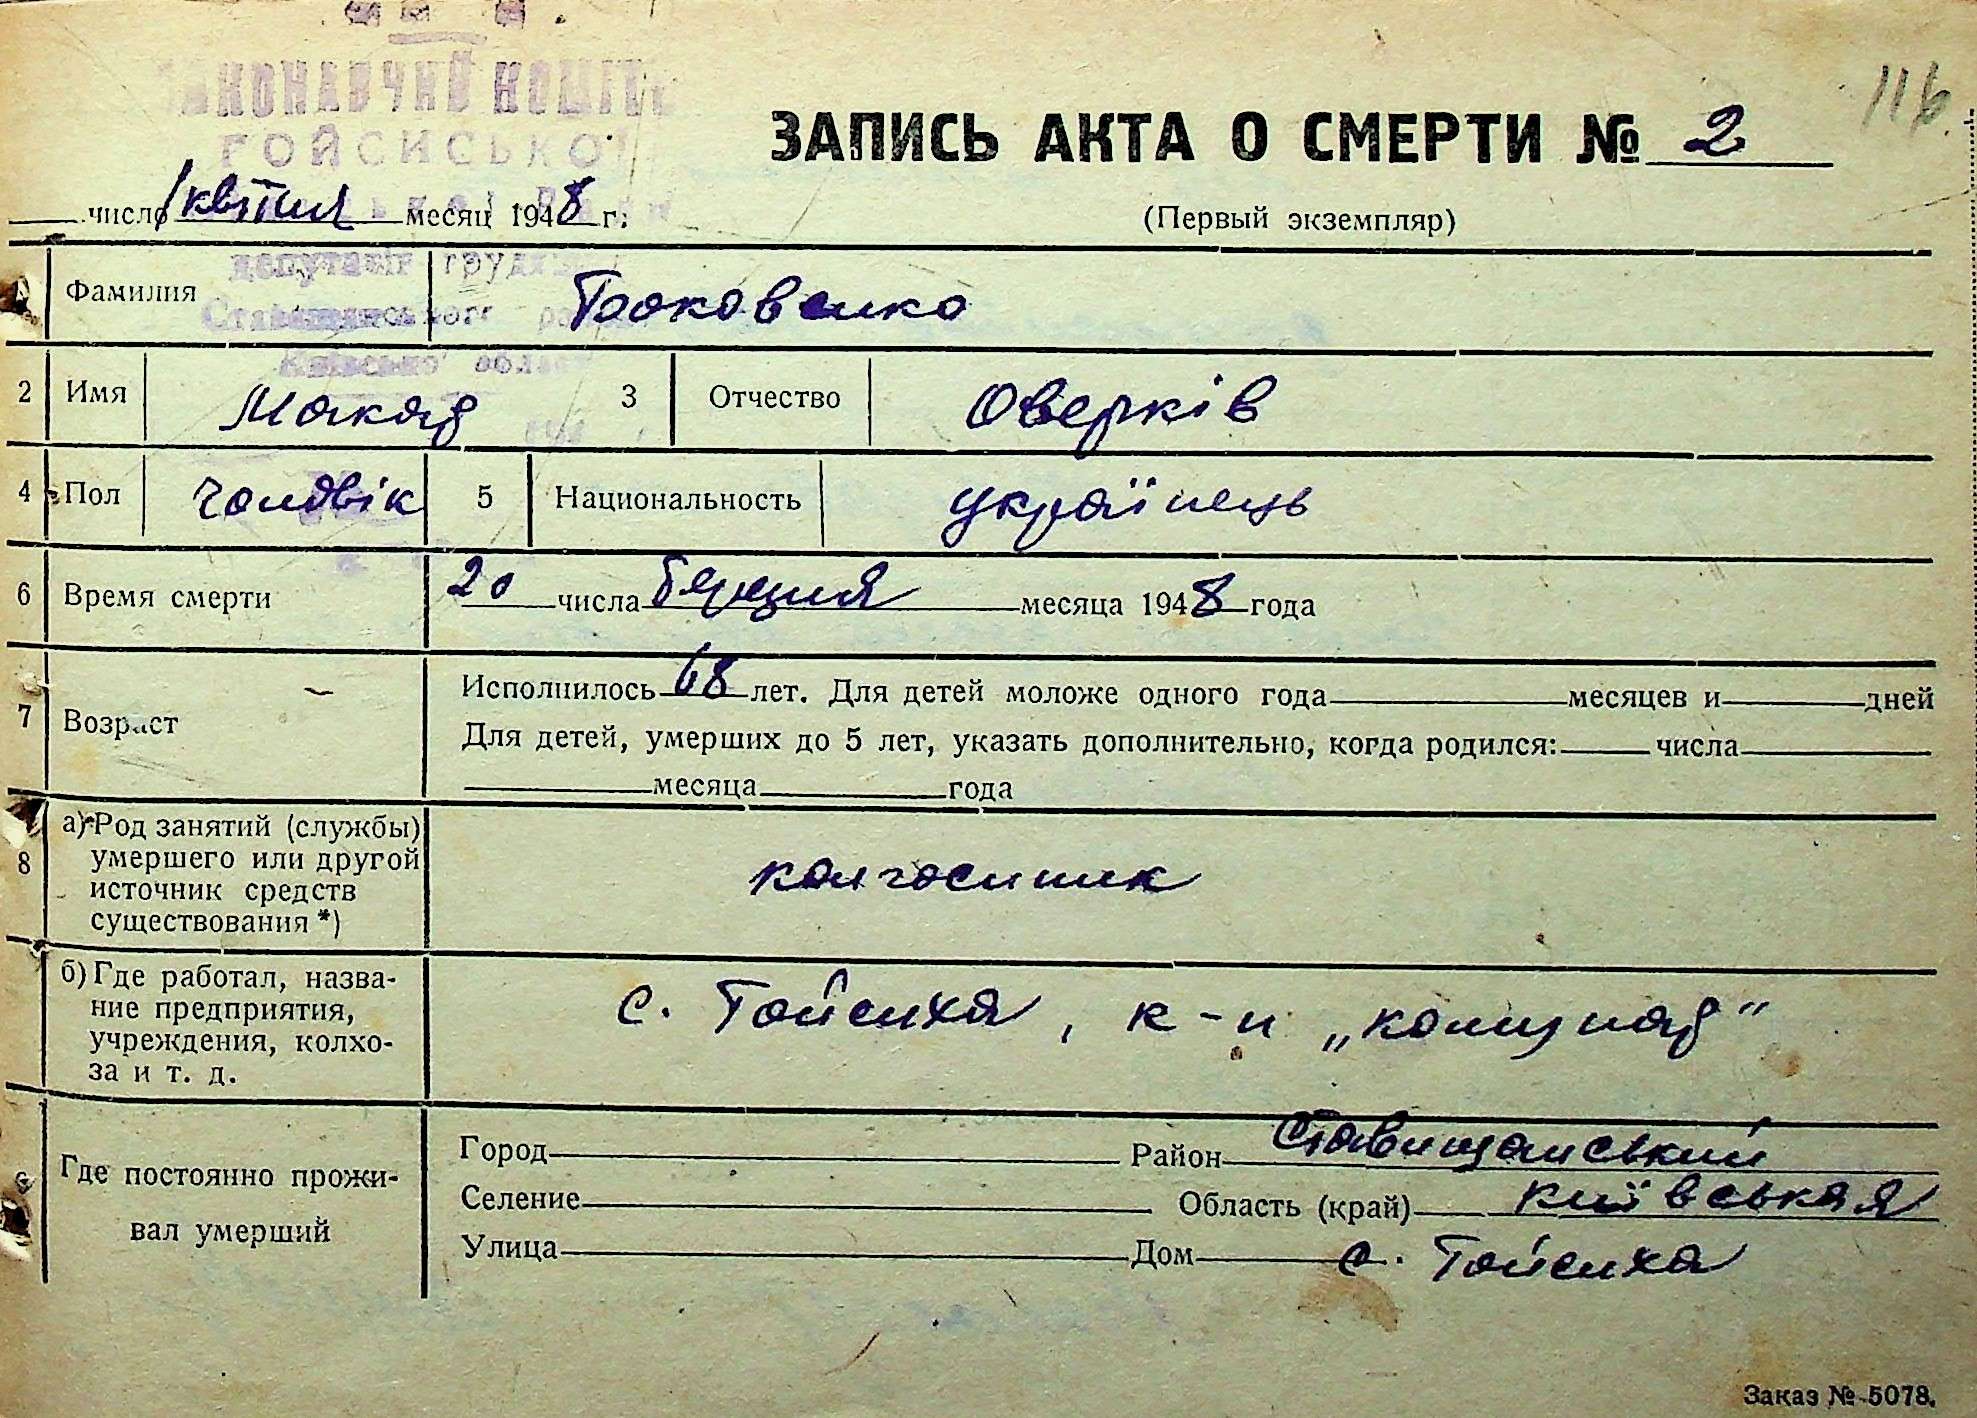 ВИКОНАВЧИЙ КОМІТЕТ
ГОЙСИСЬКОЇ
депутатів трудящих
Ставищанського району
Київської області
116
ЗАПИСЬ АКТА О СМЕРТИ № 2
1 число квітня месяц 1948 г.
(Первый экземпляр)
Фамилия Боковенко
2 Имя Макар 3 Отчество Оверків
4 Пол чоловік 5 Национальность українець
6 Время смерти 20 числа березня месяца 1948 года
7 Возраст Исполнилось 68 лет. Для детей моложе одного года месяцев и дней
Для детей, умерших до 5 лет, указать дополнительно, когда родился: числа
месяца года
8 а) Род занятий (службы)
умершего или другой
источник средств
существования *)
колгоспник
б) Где работал, назва-
ние предприятия,
учреждения, колхо-
за и т. д.
с. Гойсиха, к-п „комунар"
Где постоянно прожи-
вал умерший
Город Район Ставищанський
Селение Область (край) київськая
Улица Дом с. Гойсиха
Заказ № 5078.